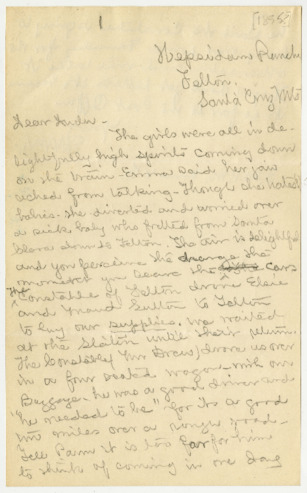 1
[1855?]
Ranch
Felton.
Santa Cruz Mts
Dear
The girls were all in de-
lightfully high spirits coming down
on the train. Emma said her jaw
ached from talking - Though she hates
babies. She diverted and worried over
a sick baby who from Santa
Clara down to Felton. The air is delightful
and you perceive the change the
moment you leave the cars
The Constable of Felton drove Elsie
and Maud Sutton to Felton
to buy our supplies. We waited
at the Station until their return.
The Constable (Mr Drew) drove us over
in a four seated wagon - with our
Baggage. he was a good driver and
"he needed to be" for its a good
miles over a rough road -
Tell Pam it is too far for him
to think of coming in one day